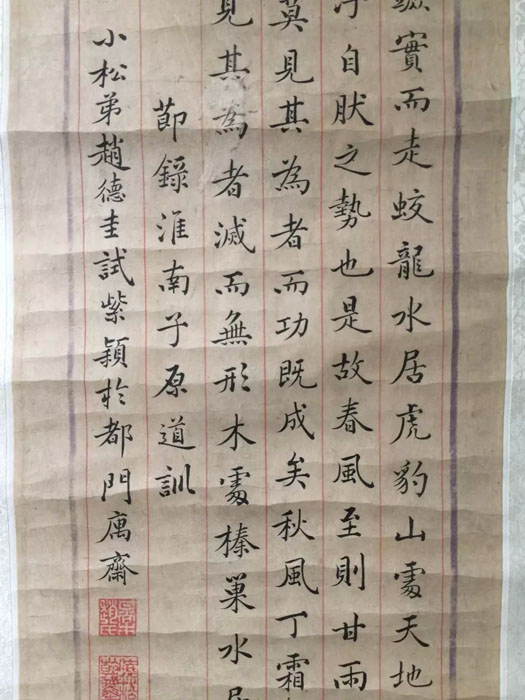 實而走蛟龍水居虎豹山處天地
自肰之勢也是故春風至則甘雨
莫見其為者而功既成矣秋風丁霜
見其為者滅而無形木處榛巢水居
莭錄淮南子原道訓
小松弟趙德圭試紫穎於都門庽齋